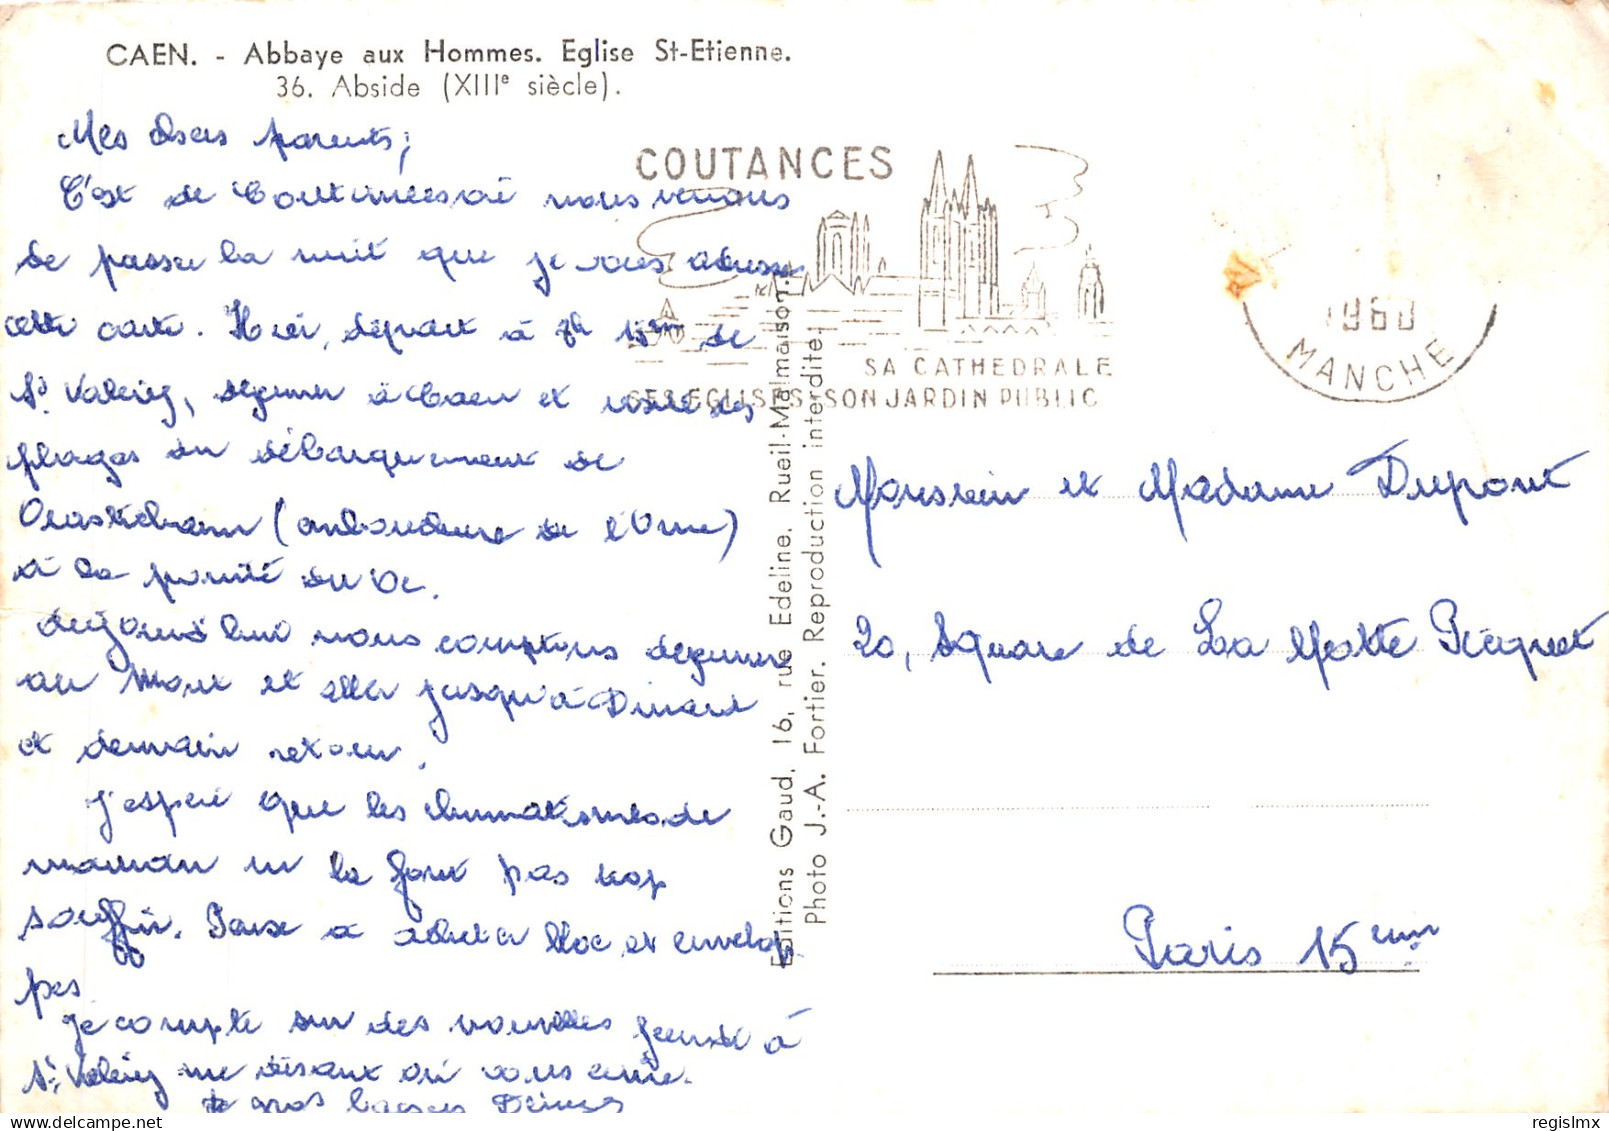 CAEN. - Abbaye aux Hommes. Eglise St-Etienne.
36. Abside (XIIIe siècle).
Mes chers parents,
C'est de Coutances où nous venons
de passer la nuit que je vous adresse
cette carte. Hier, départ à 8h de
St Valéry, déjeuner à Caen et visite des
plages du débarquement de
Ouistreham (embouchure de l'Orne)
à la pointe du
Aujourd'hui nous comptons déjeuner
au Mont et aller jusqu'à Dinard
et demain retour.
J'espère que les rhumatismes de
maman ne la font pas trop
souffrir. Pense à acheter bloc et envelop
pes
Je compte sur des nouvelles jeudi à
St Valéry me disant où vous
gros baisers
COUTANCES
SA CATHEDRALE
SES EGLISES SON JARDIN PUBLIC
1960
MANCHE
Editions Gaud, 16, rue Edeline. Rueil-Malmaison.
Photo J.-A. Fortier. Reproduction interdite
Monsieur et Madame Dupont
20, Square de La Motte Picquet
Paris 15eme
regislmx